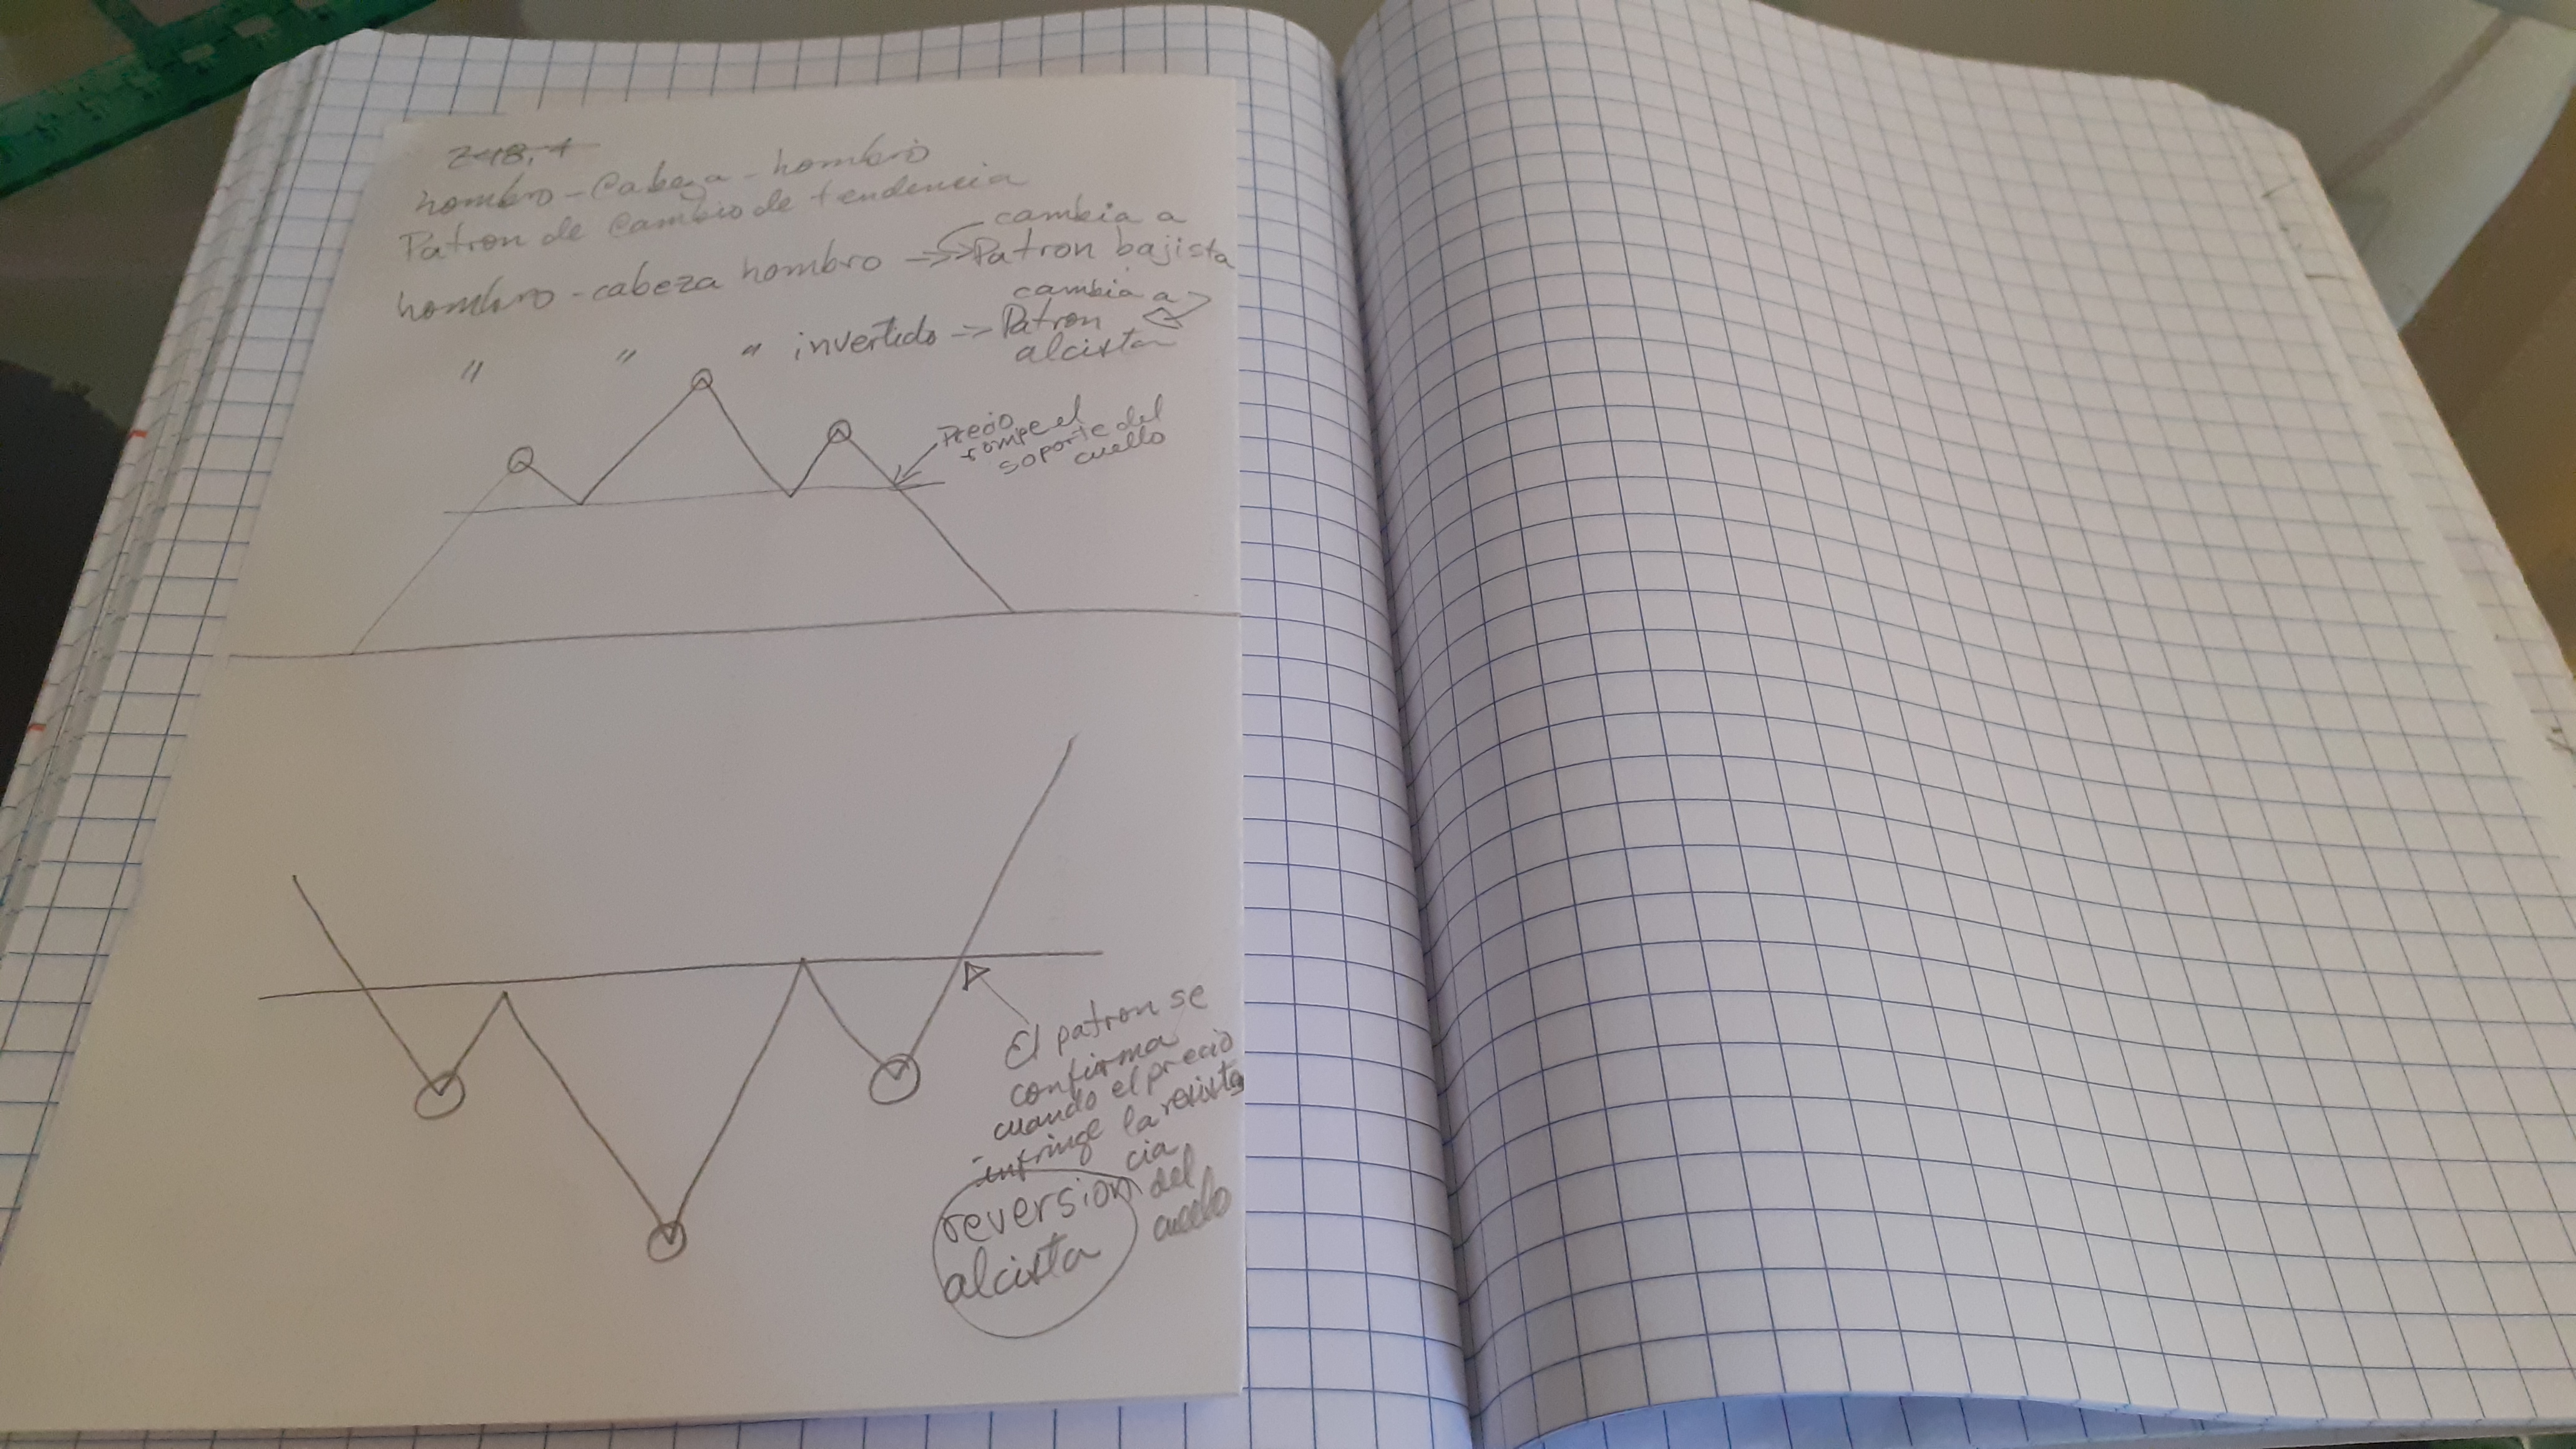 hombro - Cabeza - hombro
Patron de Cambio de tendencia
cambia a
hombro - cabeza hombro => Patron bajista
cambia a
" " " invertido => Patron
alcista
Precio
rompe el
soporte del
cuello
El patron se
confirma
cuando el precio
infringe la resisten
cia
del
cuello
reversion
alcista